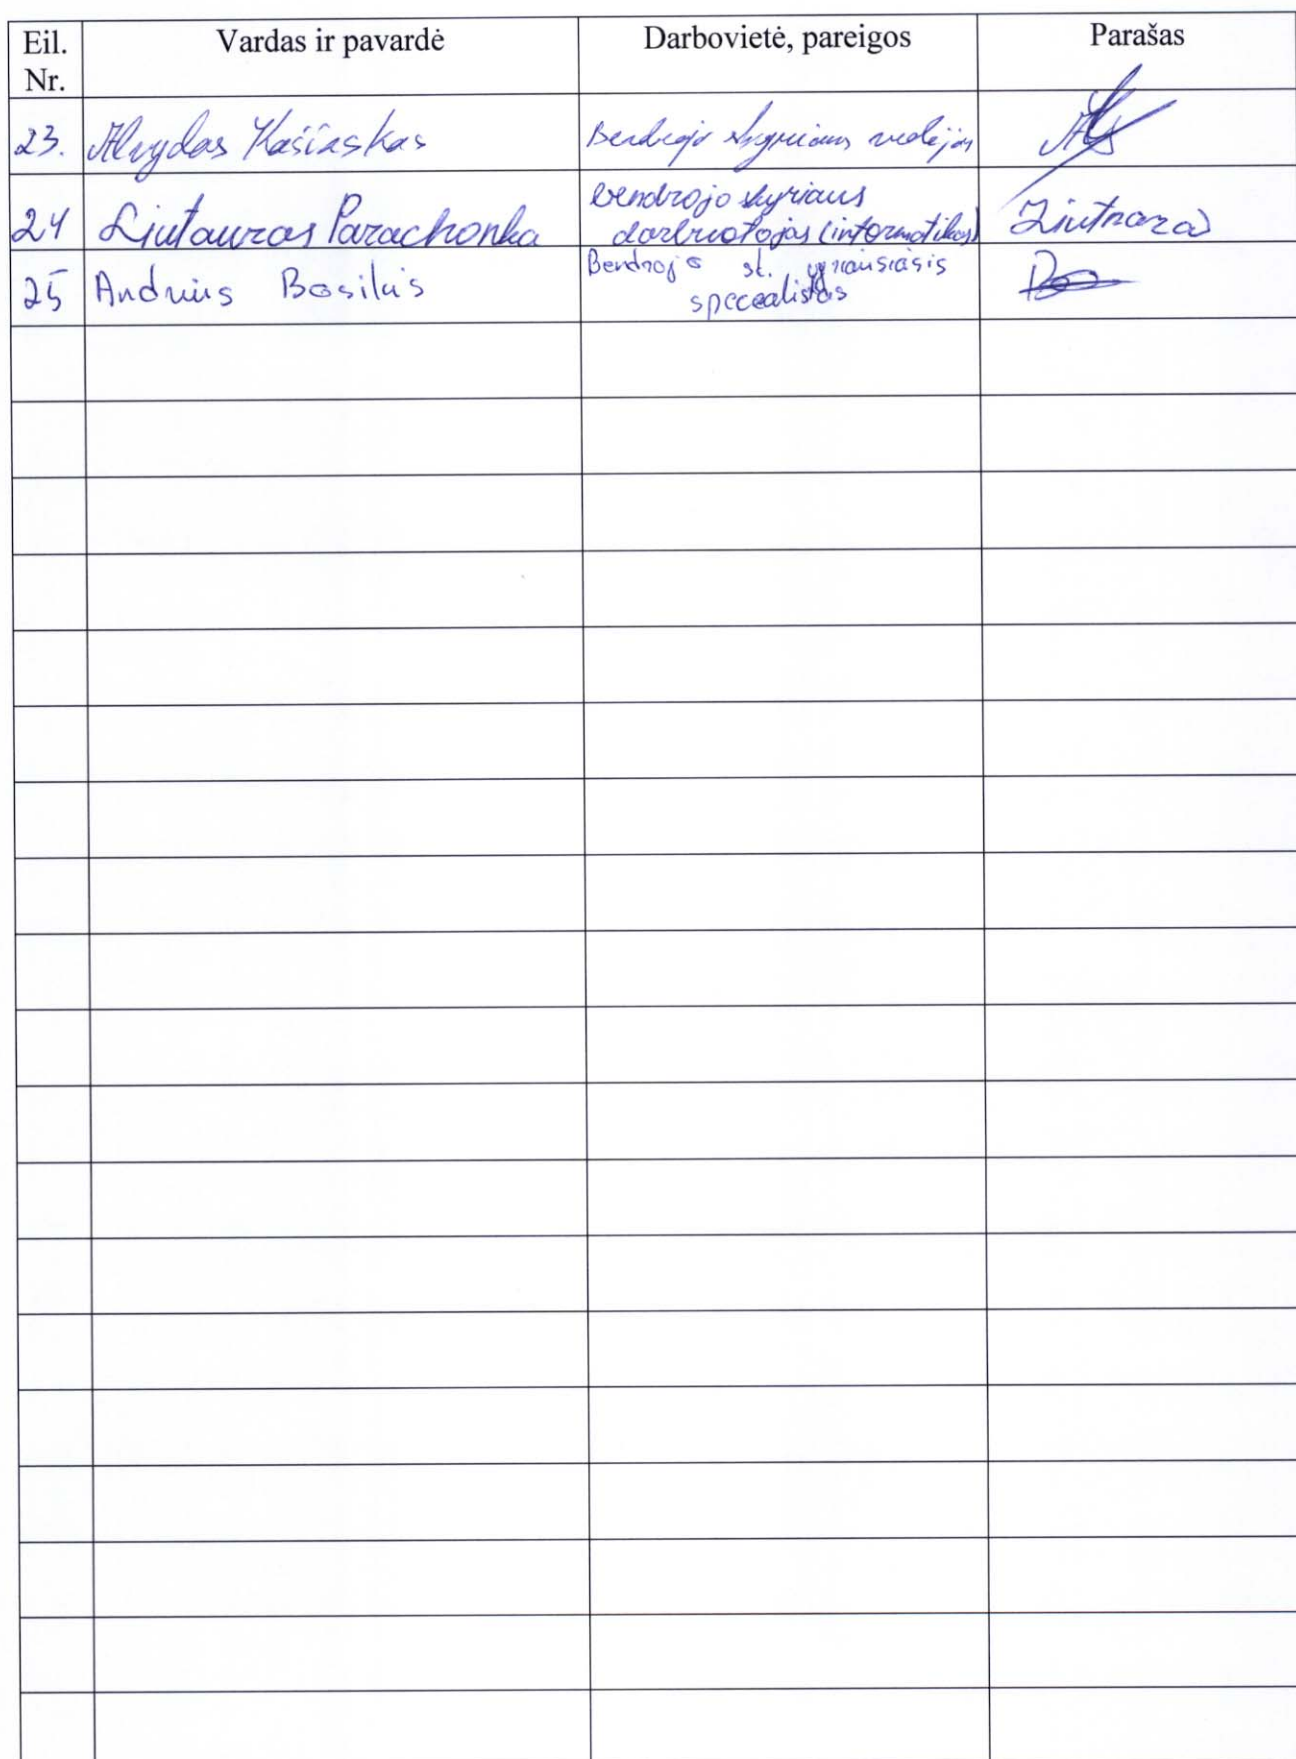 Eil. Nr. Vardas ir pavardė Darbovietė, pareigos Parašas
23. Alvydas Bendrojo skyriaus vedėjas
24 Liutauras Parachonka bendrojo skyriaus
darbuotojas (informatikas)
25 Andrius Basilus Bendrojo sk. vyriausiasis
specealistas